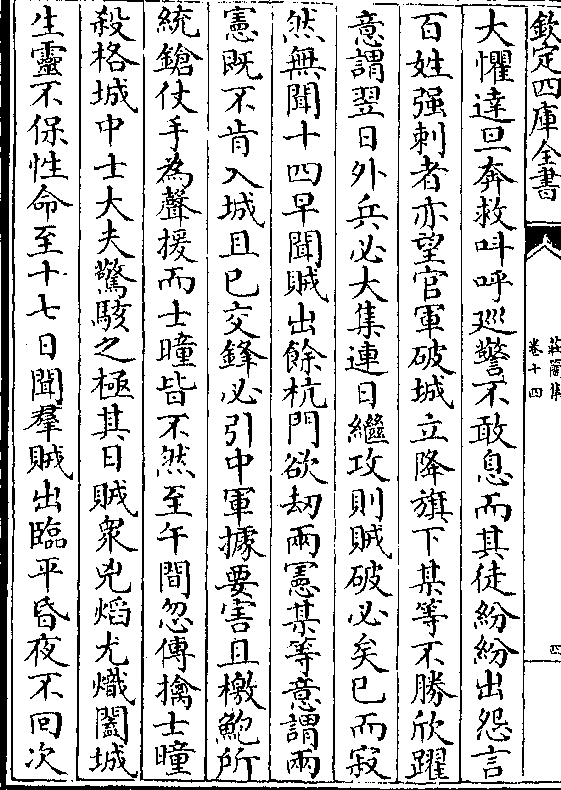 欽定四庫全書
莊簡集
卷十四
四
大懼達旦奔救呌呼巡警不敢息而其徒紛紛出怨言
百姓强刺者亦望官軍破城立降旗下某等不勝欣躍
意謂翌日外兵必大集連日繼攻則賊破必矣已而寂
然無聞十四早聞賊出餘杭門欲劫兩憲某等意謂兩
憲既不肯入城且已交鋒必引中軍據要害且檄鮑所
統鎗仗手為聲援而士曈皆不然至午間忽傳擒士曈
殺格城中士大夫驚駭之極其日賊衆兇熖尤熾闔城
生靈不保性命至十七日聞羣賊出臨平昏夜不回次